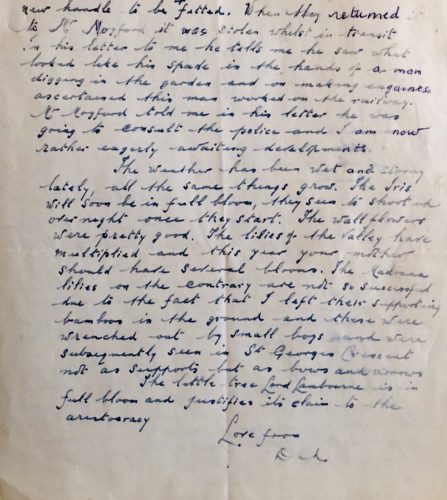 new handle to be fitted. When they returned
to Mr Moxford it was stolen whilst in transit
In his letter to me he tells me he saw what
looked like his spade in the hands of a man
digging in the garden and on making enquiries
ascertained this man worked on the railway.
Mr Moxford told me in his letter he was
going to consult the police and I am now
rather eagerly awaiting developments.
The weather has been wet and stormy
lately, all the same things grow. The Iris
will soon be in full bloom, they seem to shoot up
over night once they start. The wallflowers
were pretty good. The lilies of the Valley have
multiplied and this year your mother
should have several blooms. The Madonna
lilies on the contrary are not so successful
due to the fact that I left their supporting
bamboos in the ground and these were
wrenched out by small boys and were
subsequently seen in St Georges Crescent
not as supports but as bows and arrows
The little tree Lord Lambourne is in
full bloom and justifies its claim to the
aristocracy
Love from
Dad